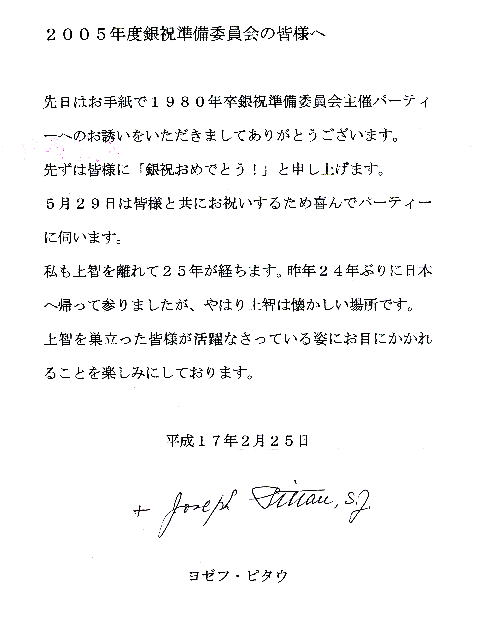 ２００５年度銀祝準備委員会の皆様へ
先日はお手紙で１９８０年卒銀祝準備委員会主催パーティ
ーへのお誘いをいただきましてありがとうございます。
先ずは皆様に「銀祝おめでとう！」と申し上げます。
５月２９日は皆様と共にお祝いするため喜んでパーティー
に伺います。
私も上智を離れて２５年が経ちます。昨年２４年ぶりに日本
へ帰って参りましたが、やはり上智は懐かしい場所です。
上智を巣立った皆様が活躍なさっている姿にお目にかかれ
ることを楽しみにしております。
平成１７年２月２５日
+ Joseph Pittau, S.J.
ヨゼフ・ピタウ